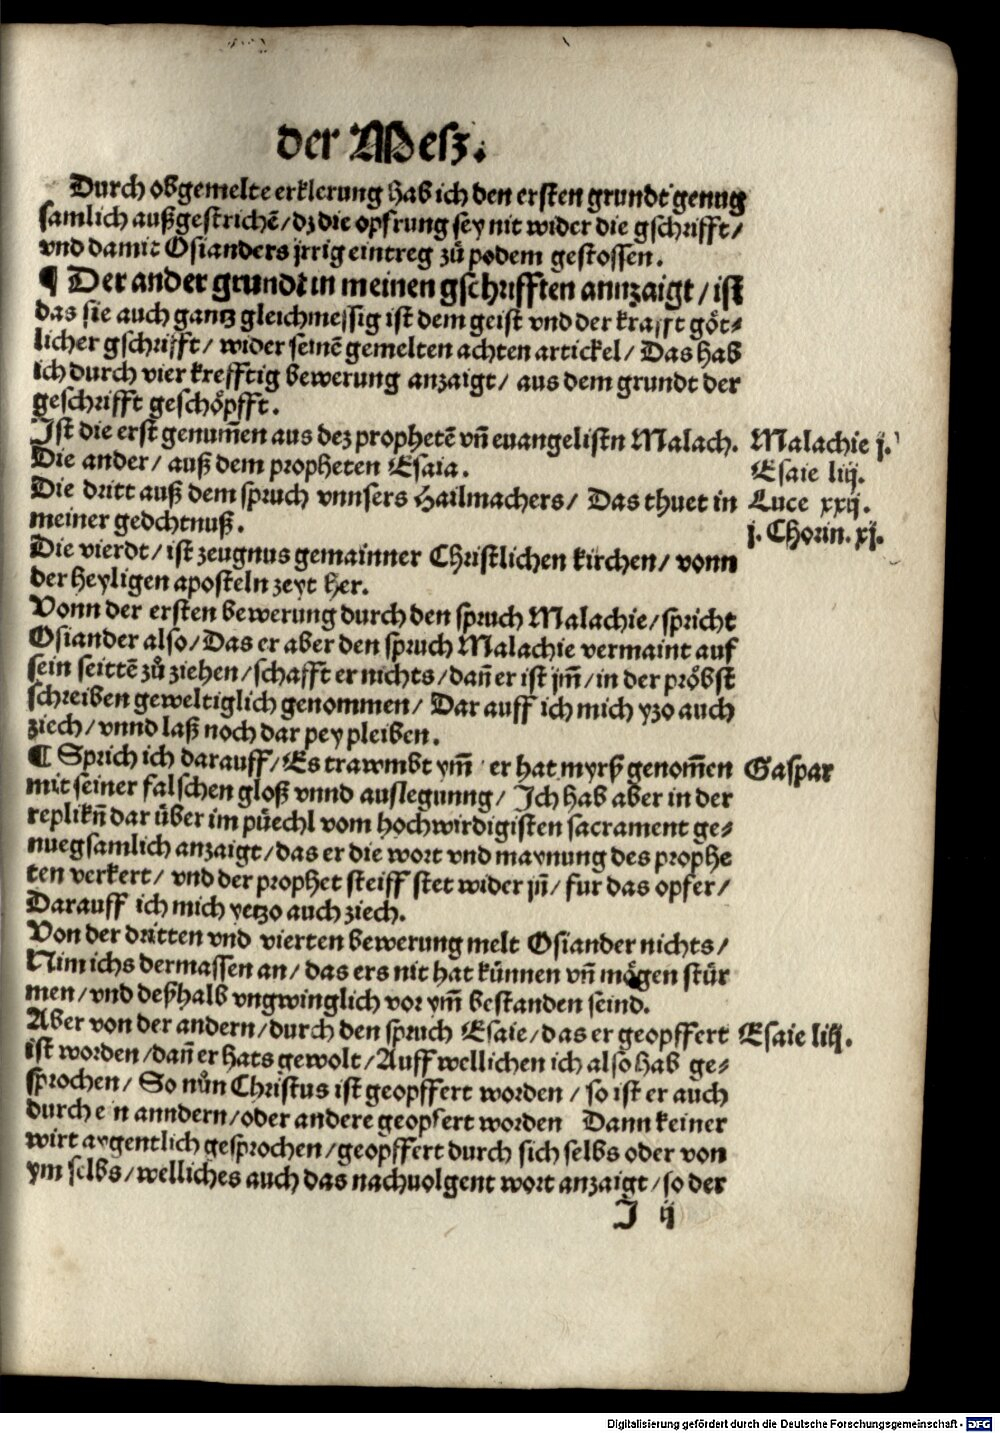 der Mesz.
Durch obgemelte erklerung hab ich den ersten grundt genug
samlich außgestrichē/dz die opfrung sey nit wider die gschrifft/
vnd damit Osianders jrrig eintreg zů podem gestossen.
¶ Der ander grundt in meinen gschrifften anzaigt/ist
das sie auch gantz gleichmessig ist dem geist vnd der krafft göt⸗
licher gschrifft/ wider seinē gemelten achten artickel/ Das hab
ich durch vier krefftig bewerung anzaigt/ aus dem grundt der
geschrifft geschöpfft.
Ist die erst genum̄en aus dez prophetē vn̄ euangelistn Malach. Malachie j.
Die ander/ auß dem propheten Esaia. Esaie liij.
Die dritt auß dem spruch vnnsers Hailmachers/ Das thuet in Luce xxij.
meiner gedchtnuß. j. Chorin. xj.
Die vierdt/ ist zeugnus gemainner Christlichen kirchen/ vonn
der heyligen aposteln zeyt her.
Vonn der ersten bewerung durch den spruch Malachie/spricht
Osiander also/Das er aber den spruch Malachie vermaint auf
sein seittē zů ziehen/schafft er nichts/dan̄ er ist jm̄/in der pröbst
schreiben geweltiglich genommen/ Dar auff ich mich yzo auch
ziech/vnnd laß noch dar pey pleiben.
¶ Sprich ich darauff/Es trawmbt ym̄ er hat myrß genom̄en Gaspar
mit seiner falschen gloß vnnd auslegunng/ Ich hab aber in der
replikn̄ dar über im püechl vom hochwirdigisten sacrament ge⸗
nuegsamlich anzaigt/das er die wort vnd maynung des prophe
ten verkert/ vnd der prophet steiff stet wider jn̄/ fur das opfer/
Darauff ich mich yetzo auch ziech.
Von der dritten vnd vierten bewerung melt Osiander nichts/
Nim ichs dermassen an/ das ers nit hat künnen vn̄ mögen stür
men/vnd deßhalb vngwinglich vor ym̄ bestanden seind.
Aber von der andern/durch den spruch Esaie/das er geopffert Esaie liij.
ist worden/dan̄ er hats gewolt/Auff wellichen ich also hab ge⸗
sprochen/ So nůn Christus ist geopffert worden/ so ist er auch
durch e n anndern/oder andere geopfert worden Dann keiner
wirt aygentlich gesprochen/geopffert durch sich selbs oder von
ym selbs/welliches auch das nachuolgent wort anzaigt/so der
J ij
Digitalisierung gefördert durch die Deutsche Forschungsgemeinschaft - DFG